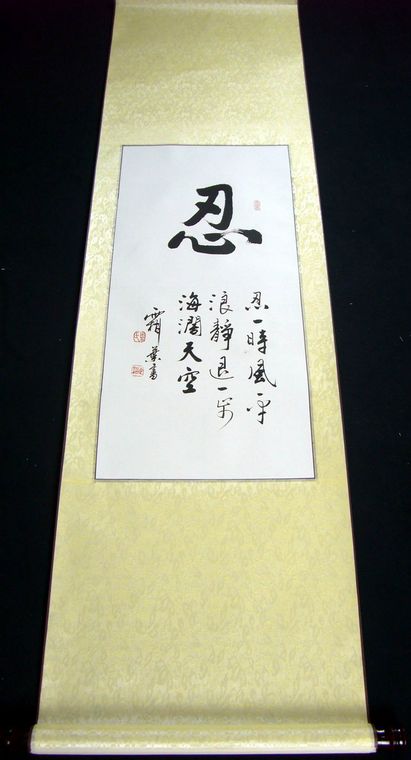 忍
忍一時風平
浪靜退一步
海濶天空
霜葉書